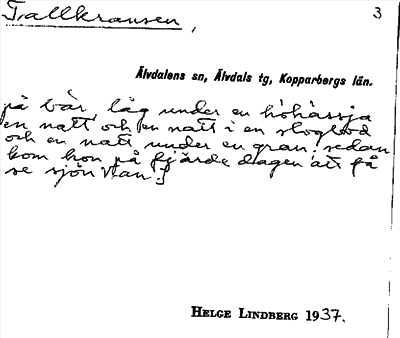 Tallkransen,
3
Älvdalens sn, Älvdals tg, Kopparbergs län.
på vår, låg under en höhässja
en natt, och en natt i en slogbod
och en natt under en gran. sedan
kom hon på fjärde dagen att få
se sjön Van.]
HELGE LINDBERG 1937.